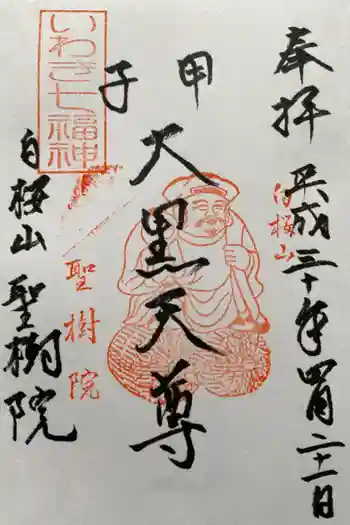 奉拝
平成三十年四月二十一日
白桜山
甲
子
大黒天尊
いわき七福神
聖樹院
白桜山
聖樹院